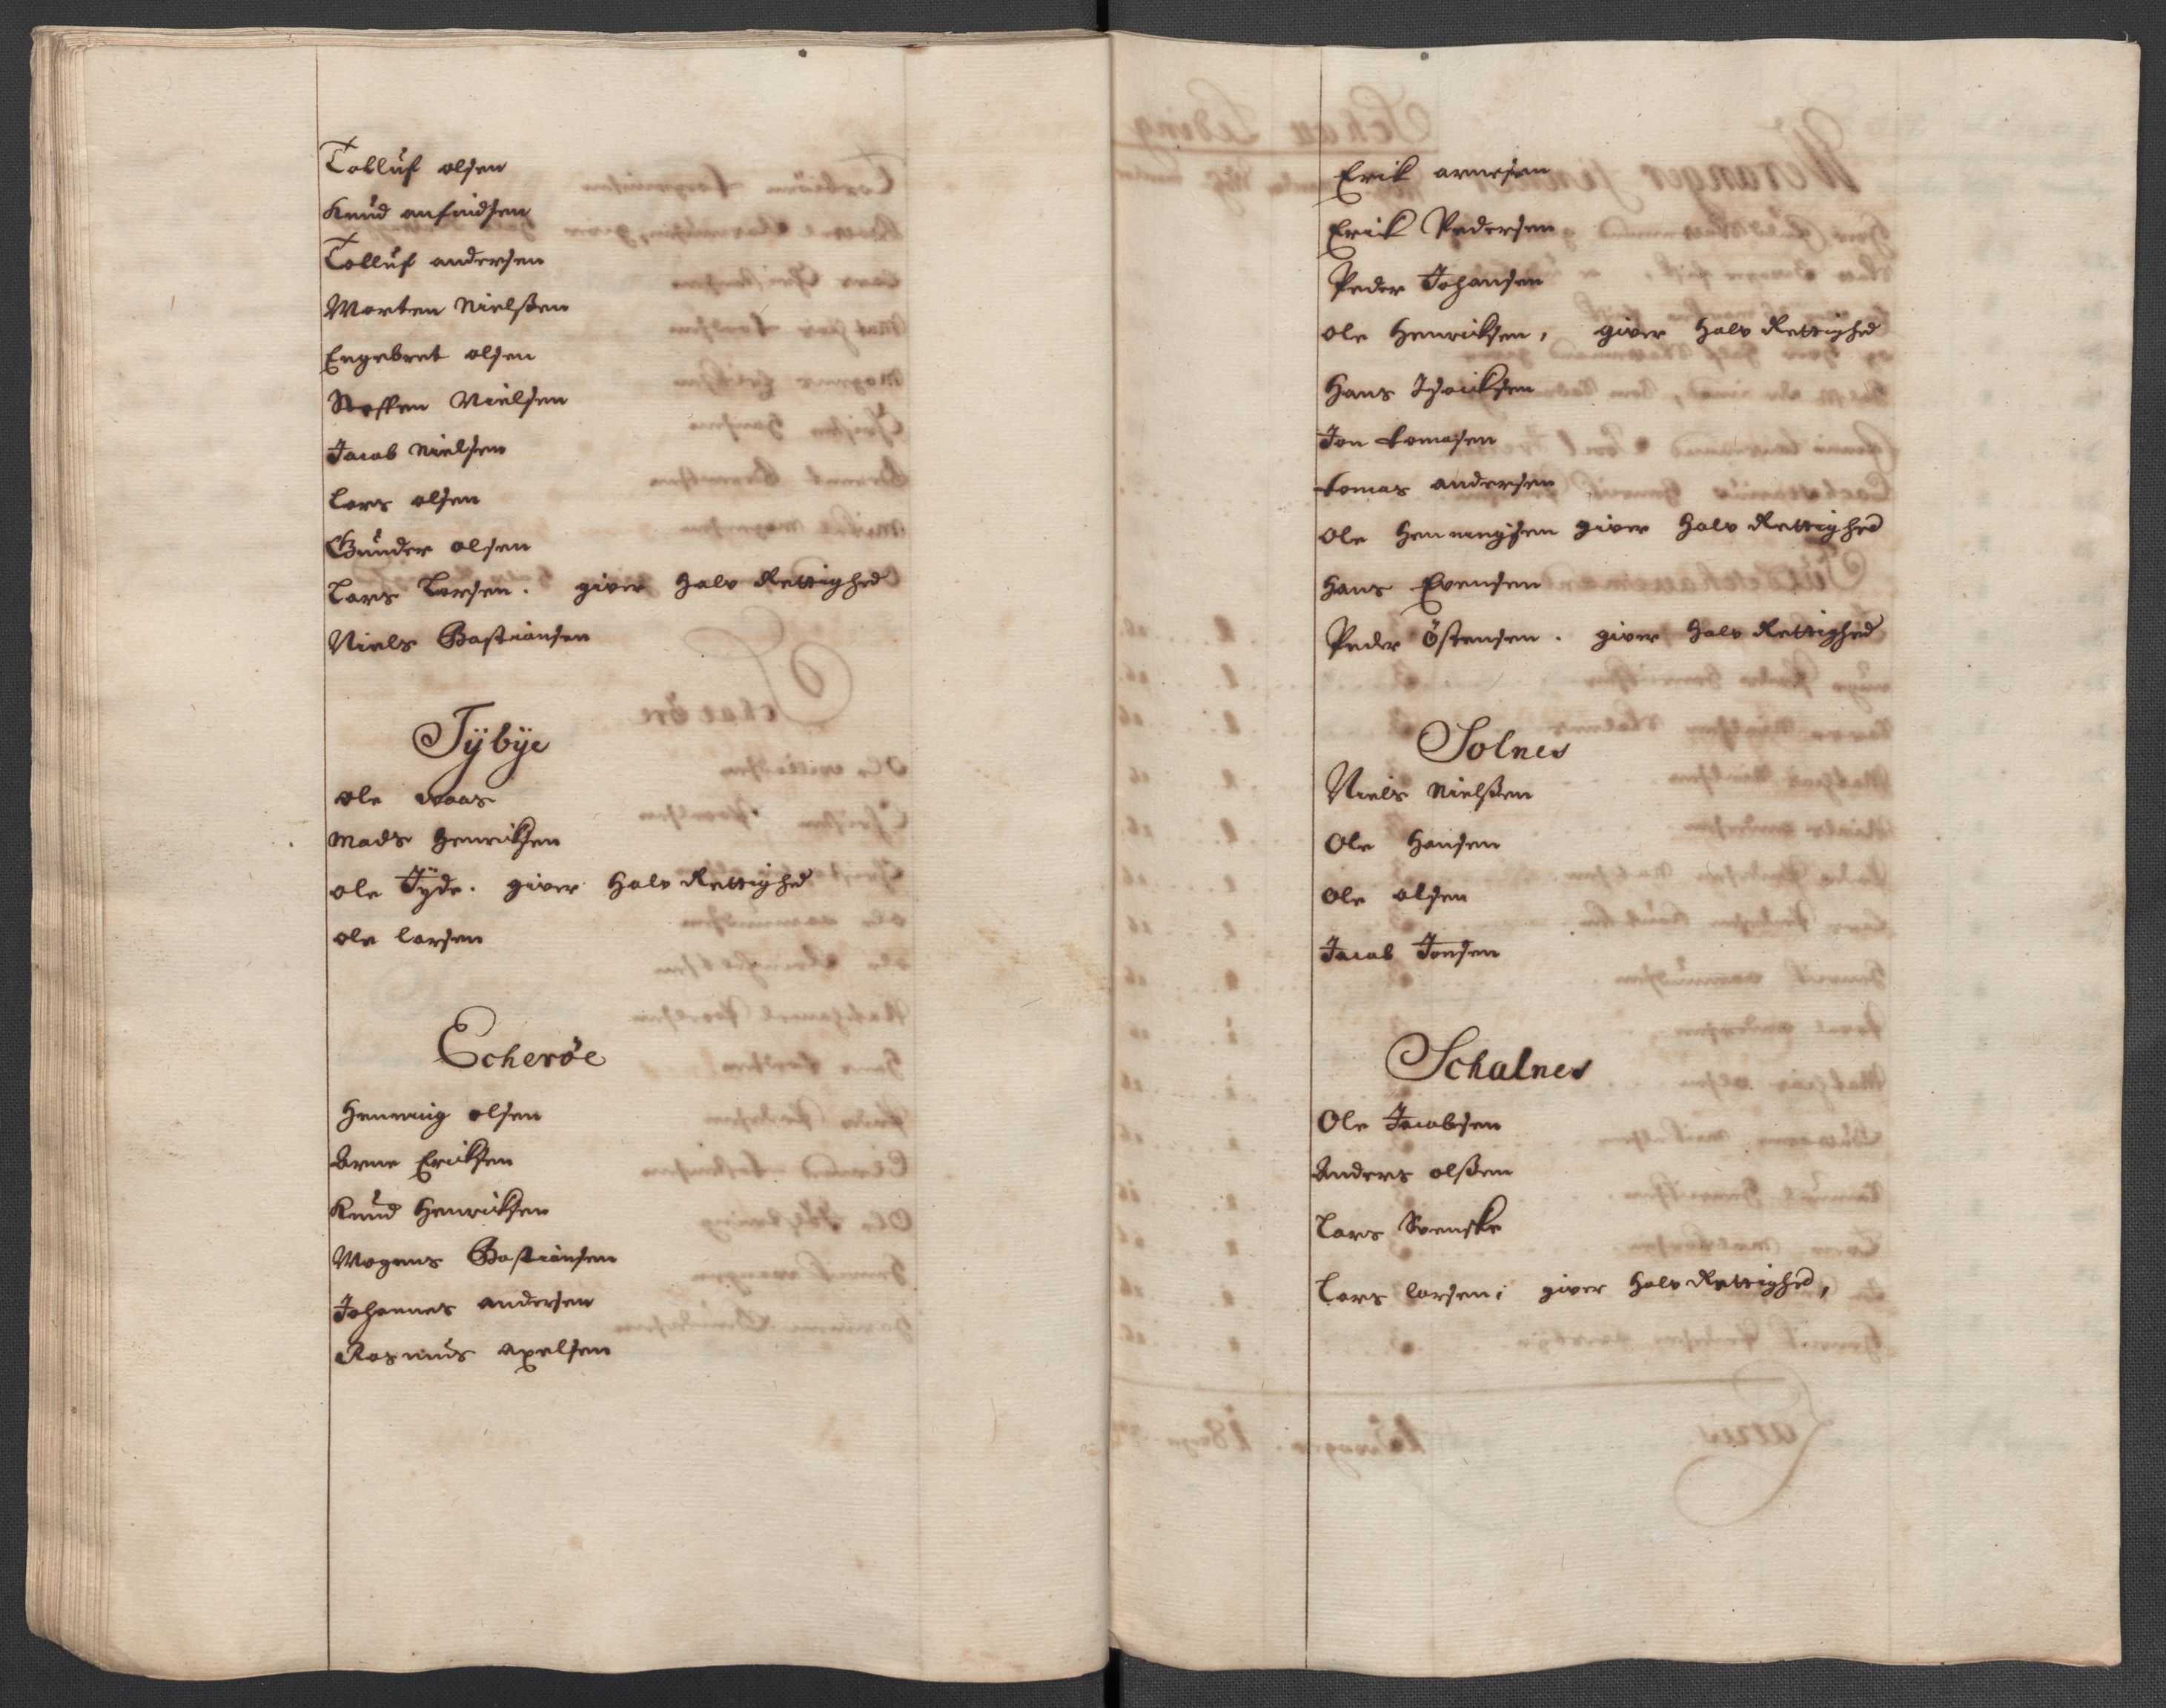 Tolluf olsen
Knud anfindsen
Tolluf andersen
Morten Nielsßen
Engebret olsen
Steffen Nielsen
Jacob Nielsen
Lars olsen
Gunder olsen
Lars Larsen. giver halv Rettighed
Niels Bastiansen
Tÿbÿe
ole waas
Mads Henriksen
ole Tÿde. giver halv Rettighed
ole larsen
Echerøe
Henning olsen
Arne Eriksen
Knud Henriksen
Mogens Bastiansen
Johannes andersen
Rasmus axelsen
Erik arnesen
Erick Pedersen
Peder Johansen
ole Henricksen, giver halv Rettighed
Hans Isacksen
Jon tomasen
tomas andersen
Ole Henningsen giver halv Rettighed
Hans Evensen
Peder Östensen. giver halv Rettighed
Solnes
Niels Nielsßen
Ole Hansen
Ole olsen
Jacob Jonsen
Schalnes
Ole Jacobsen
Anders olsßen
Lars Svenske
Lars larsen; giver halv Rettighed,